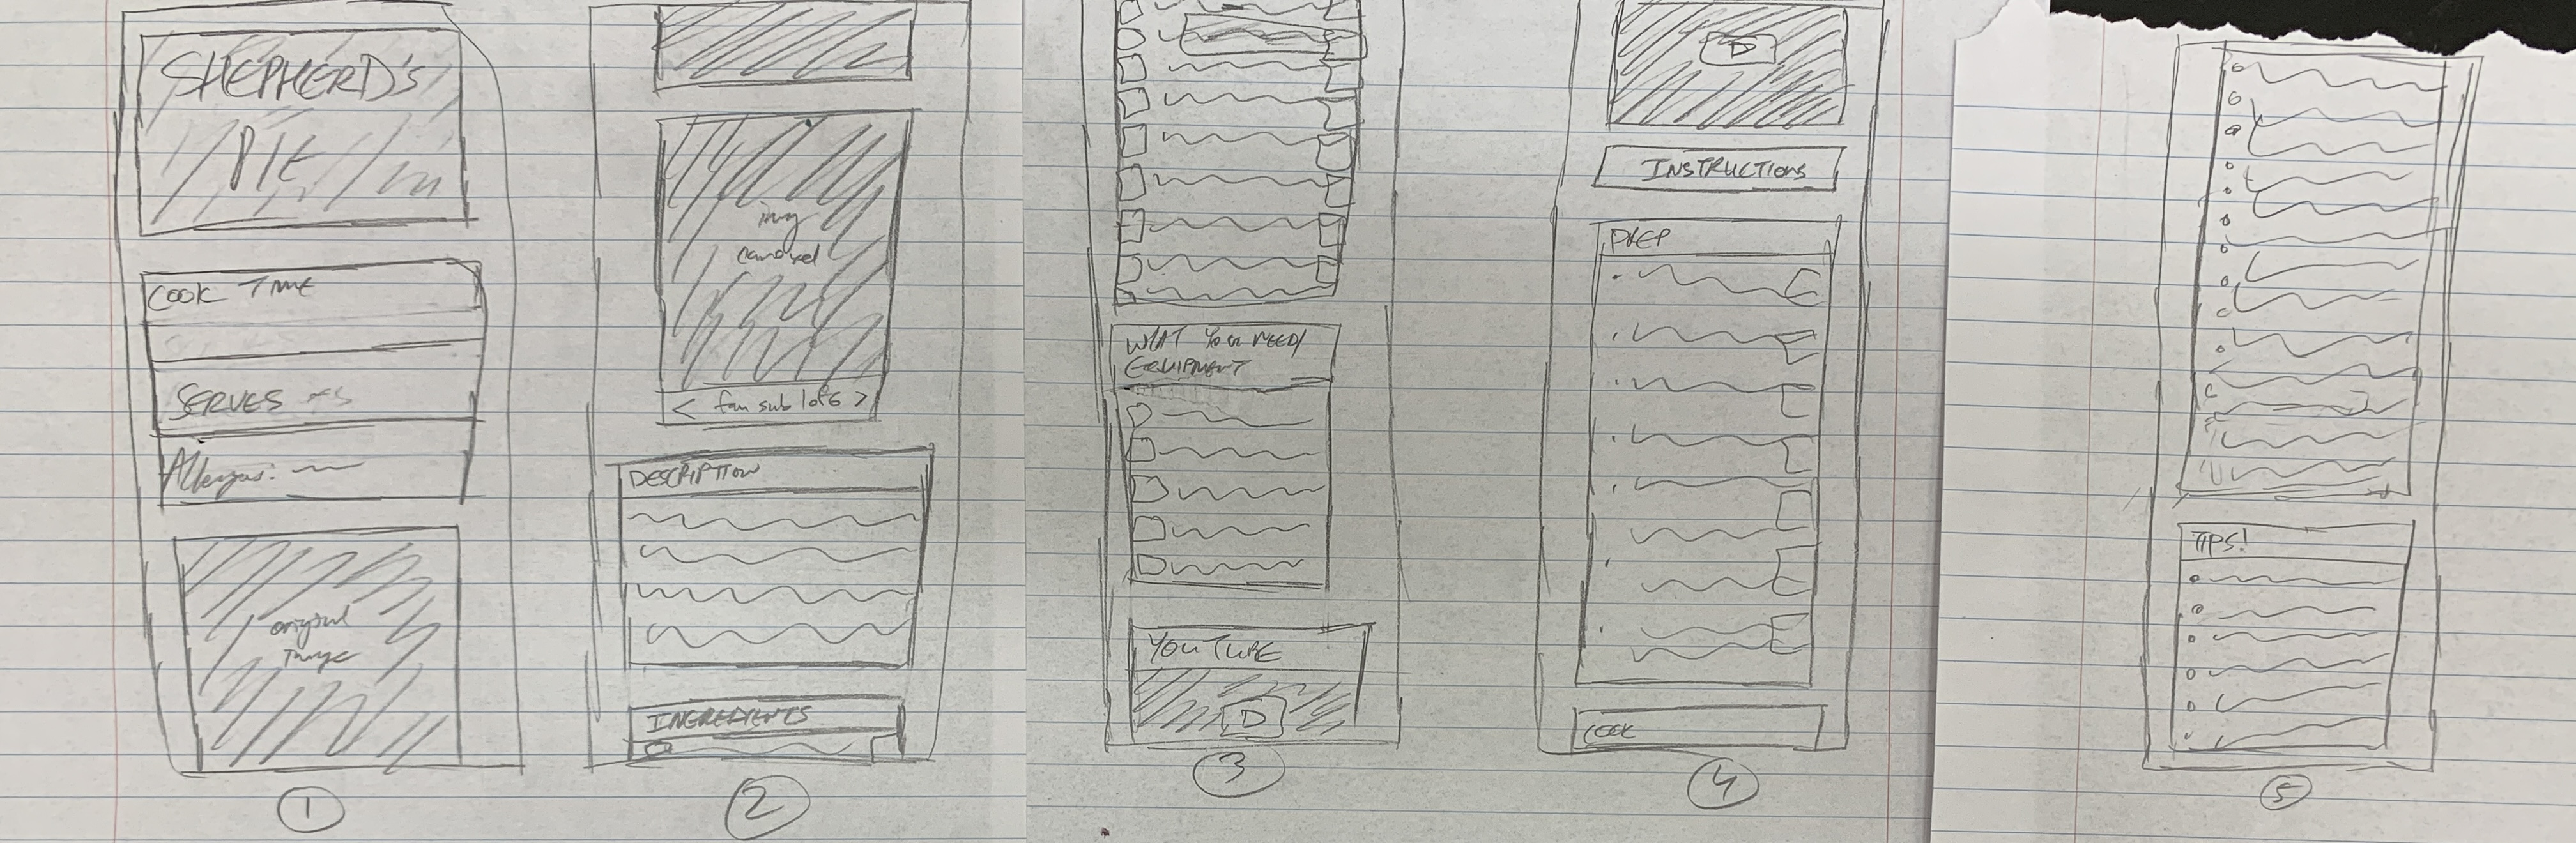 SHEPHERD'S
PIE
COOK TIME
SERVES
Allergies:
original
Image
1
img
carousel
< fan sub 1 of 6 >
DESCRIPTION
INGREDIENTS
2
WHAT YOU NEED/
EQUIPMENT
YOUTUBE
3
INSTRUCTIONS
PREP
COOK
4
TIPS!
5